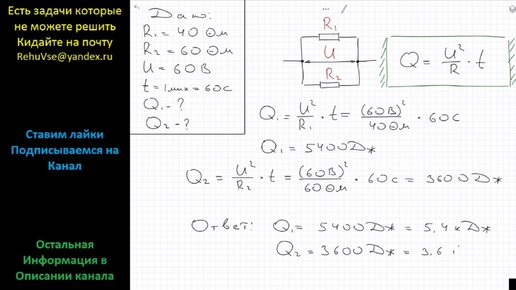 Есть задачи которые
не можете решить
Кидайте на почту
RehuVse@yandex.ru
Ставим лайки
Подписываемся на
Канал
Остальная
Информация в
Описании канала
Дано:
R₁ = 40 Ом
R₂ = 60 Ом
U = 60 В
t = 1 мин = 60 с
Q₁ - ?
Q₂ - ?
R₁
U
R₂
Q = U²/R · t
Q₁ = U²/R₁ · t = (60В)²/40 Ом · 60с
Q₁ = 5400 Дж
Q₂ = U²/R₂ · t = (60В)²/60 Ом · 60с = 3600 Дж
Ответ: Q₁ = 5400 Дж = 5,4 кДж
Q₂ = 3600 Дж = 3,6